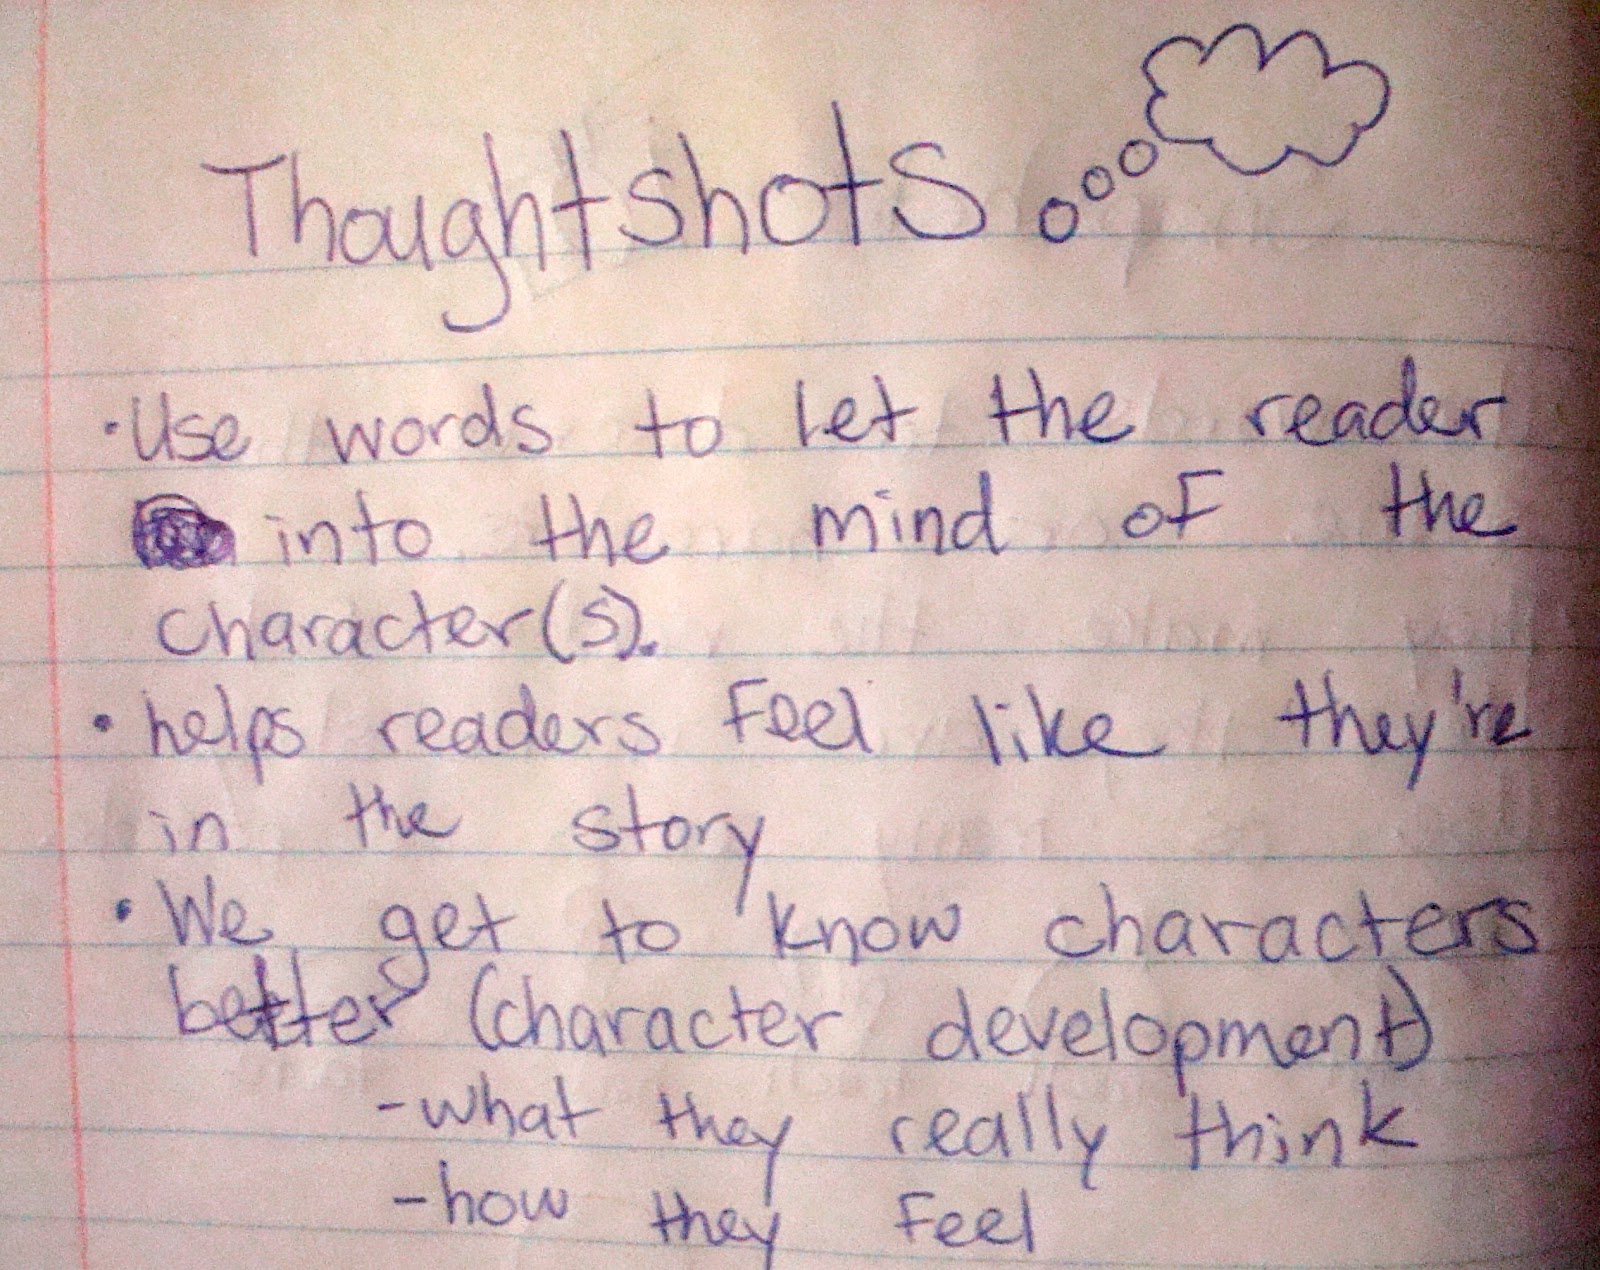 Thoughtshots
·Use words to let the reader
into the mind of the
character(s).
• helps readers Feel like they're
in the story
• We get to know characters
better (character development)
-what they really think
-how they Feel